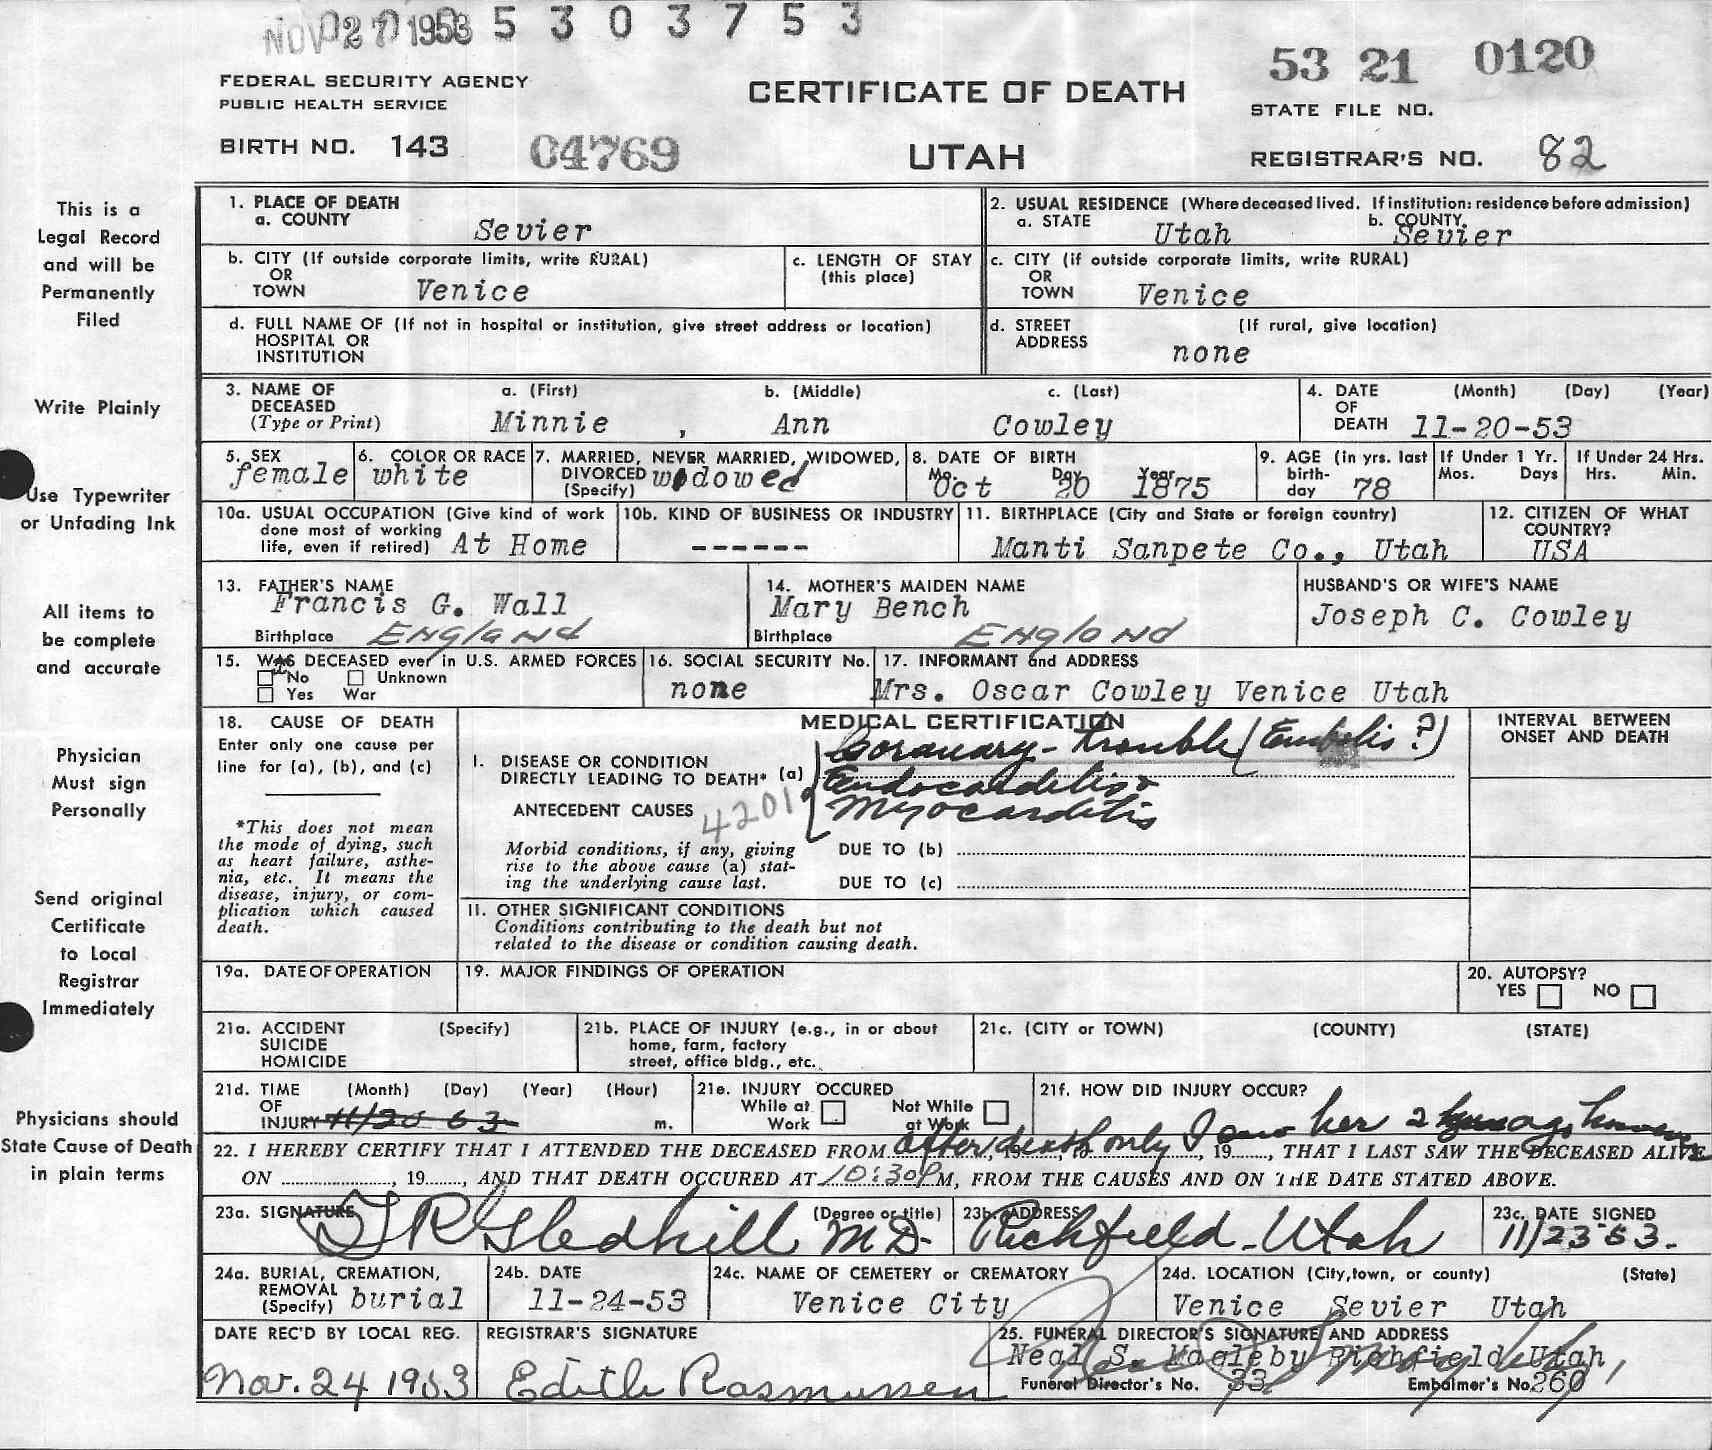 NOV 27 1953 5 3 0 3 7 5 3
53 21 0120
FEDERAL SECURITY AGENCY
PUBLIC HEALTH SERVICE
CERTIFICATE OF DEATH
STATE FILE NO.
BIRTH NO. 143 04769
UTAH
REGISTRAR'S NO. 82
This is a
Legal Record
and will be
Permanently
Filed
Write Plainly
Use Typewriter
or Unfading Ink
All items to
be complete
and accurate
Physician
Must sign
Personally
Send original
Certificate
to Local
Registrar
Immediately
Physicians should
State Cause of Death
in plain terms
1. PLACE OF DEATH
a. COUNTY Sevier
2. USUAL RESIDENCE (Where deceased lived. If institution: residence before admission)
a. STATE Utah b. COUNTY. Sevier
b. CITY (If outside corporate limits, write RURAL)
OR
TOWN Venice
c. LENGTH OF STAY
(this place)
c. CITY (if outside corporate limits, write RURAL)
OR
TOWN Venice
d. FULL NAME OF (If not in hospital or institution, give street address or location)
HOSPITAL OR
INSTITUTION
d. STREET (If rural, give location)
ADDRESS none
3. NAME OF a. (First) b. (Middle) c. (Last)
DECEASED
(Type or Print) Minnie , Ann Cowley
4. DATE (Month) (Day) (Year)
OF
DEATH 11-20-53
5. SEX
female
6. COLOR OR RACE
white
7. MARRIED, NEVER MARRIED, WIDOWED,
DIVORCED widowed
(Specify)
8. DATE OF BIRTH
Mo. Day Year
Oct 20 1875
9. AGE (in yrs. last
birth-
day 78
If Under 1 Yr.
Mos. Days
If Under 24 Hrs.
Hrs. Min.
10a. USUAL OCCUPATION (Give kind of work
done most of working
life, even if retired) At Home
10b. KIND OF BUSINESS OR INDUSTRY
------
11. BIRTHPLACE (City and State or foreign country)
Manti Sanpete Co., Utah
12. CITIZEN OF WHAT
COUNTRY?
USA
13. FATHER'S NAME
Francis G. Wall
Birthplace England
14. MOTHER'S MAIDEN NAME
Mary Bench
Birthplace England
HUSBAND'S OR WIFE'S NAME
Joseph C. Cowley
15. WAS DECEASED ever in U.S. ARMED FORCES
No Unknown
Yes War
16. SOCIAL SECURITY No.
none
17. INFORMANT and ADDRESS
Mrs. Oscar Cowley Venice Utah
18. CAUSE OF DEATH
Enter only one cause per
line for (a), (b), and (c)
*This does not mean
the mode of dying, such
as heart failure, asthe-
nia, etc. It means the
disease, injury, or com-
plication which caused
death.
MEDICAL CERTIFICATION
I. DISEASE OR CONDITION
DIRECTLY LEADING TO DEATH* (a)
Coronary - trouble (Embolis?)
Endocarditis &
Myocarditis
ANTECEDENT CAUSES 4201
Morbid conditions, if any, giving
rise to the above cause (a) stat-
ing the underlying cause last.
DUE TO (b)
DUE TO (c)
II. OTHER SIGNIFICANT CONDITIONS
Conditions contributing to the death but not
related to the disease or condition causing death.
INTERVAL BETWEEN
ONSET AND DEATH
19a. DATE OF OPERATION
19. MAJOR FINDINGS OF OPERATION
20. AUTOPSY?
YES NO
21a. ACCIDENT (Specify)
SUICIDE
HOMICIDE
21b. PLACE OF INJURY (e.g., in or about
home, farm, factory
street, office bldg., etc.
21c. (CITY or TOWN) (COUNTY) (STATE)
21d. TIME (Month) (Day) (Year) (Hour)
OF
INJURY 11/20 53 m.
21e. INJURY OCCURED
While at Work
Not While at Work
21f. HOW DID INJURY OCCUR?
22. I HEREBY CERTIFY THAT I ATTENDED THE DECEASED FROM after death only I saw her 2 ago however, 19......, THAT I LAST SAW THE DECEASED ALIVE
ON ..............., 19......, AND THAT DEATH OCCURED AT 10:30P M, FROM THE CAUSES AND ON THE DATE STATED ABOVE.
23a. SIGNATURE (Degree or title)
T R Gledhill M D.
23b. ADDRESS
Richfield - Utah
23c. DATE SIGNED
11/23 53.
24a. BURIAL, CREMATION,
REMOVAL
(Specify) burial
24b. DATE
11-24-53
24c. NAME OF CEMETERY or CREMATORY
Venice City
24d. LOCATION (City, town, or county) (State)
Venice Sevier Utah
DATE REC'D BY LOCAL REG.
Nov. 24 1953
REGISTRAR'S SIGNATURE
Edith Rasmussen
25. FUNERAL DIRECTOR'S SIGNATURE AND ADDRESS
Neal S. Magleby Richfield Utah
Funeral Director's No. 33 Embalmer's No. 260